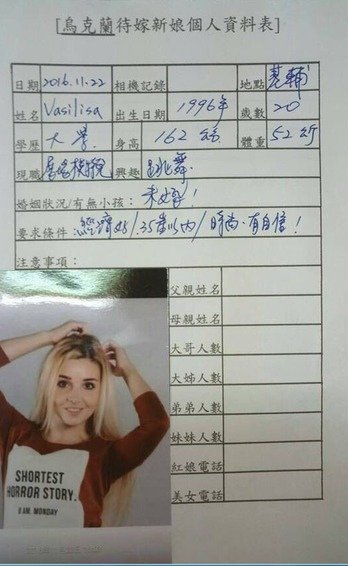 [烏克蘭待嫁新娘個人資料表]
日期 2016.11.22 相機記錄 地點
姓名 Vasilisa 出生日期 1996年 歲數 20
學歷 大學. 身高 162 公分 體重 52 公斤
現職 興趣 跳舞
婚姻狀況/有無小孩: 未婚!
要求條件 經濟好/35歲以內/時尚.有自信!
注意事項:
父親姓名
母親姓名
大哥人數
大姊人數
弟弟人數
妹妹人數
紅娘電話
美女電話
SHORTEST
HORROR STORY.
8 AM. MONDAY